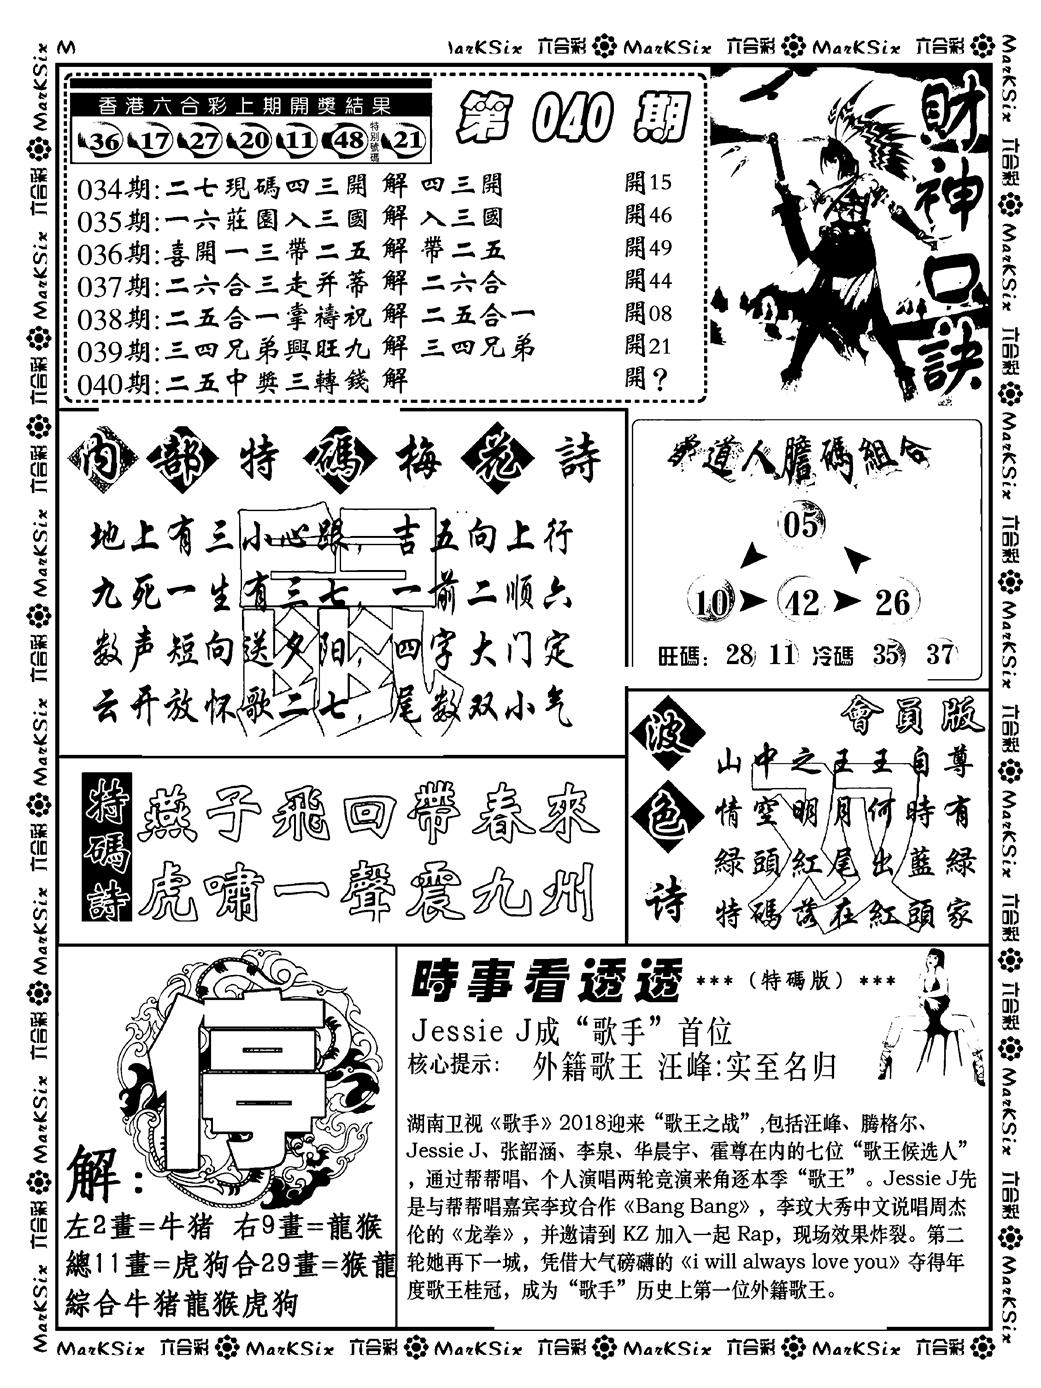 MarKSix 六合彩 MarKSix 六合彩 MarKSix 六合彩
香港六合彩上期開獎結果
36 17 27 20 11 48 特別號碼 21
第 040 期
034期:二七現碼四三開 解 四三開 開15
035期:一六莊園入三國 解 入三國 開46
036期:喜開一三帶二五 解 帶二五 開49
037期:二六合三走并蒂 解 二六合 開44
038期:二五合一掌禱祝 解 二五合一 開08
039期:三四兄弟興旺九 解 三四兄弟 開21
040期:二五中獎三轉錢 解 開?
財神口訣
内部特碼梅花詩
地上有三小心跟，吉五向上行
九死一生有三七，一前二順六
数声短向送夕阳，四字大门定
云开放怀歌二七，尾数双小气
道人膽碼組合
05
10 42 26
旺碼: 28 11 冷碼 35 37
波色诗
會員版
山中之王王自尊
情空明月何時有
緑頭紅尾出藍緑
特碼落在紅頭家
特碼詩
燕子飛回帶春來
虎嘯一聲震九州
解:
左2畫=牛猪 右9畫=龍猴
總11畫=虎狗合29畫=猴龍
綜合牛猪龍猴虎狗
時事看透透 *** (特碼版) ***
Jessie J成“歌手”首位
核心提示: 外籍歌王 汪峰:实至名归
湖南卫视《歌手》2018迎来“歌王之战”,包括汪峰、腾格尔、
Jessie J、张韶涵、李泉、华晨宇、霍尊在内的七位“歌王候选人”
，通过帮帮唱、个人演唱两轮竞演来角逐本季“歌王”。Jessie J先
是与帮帮唱嘉宾李玟合作《Bang Bang》，李玟大秀中文说唱周杰
伦的《龙拳》，并邀请到 KZ 加入一起 Rap，现场效果炸裂。第二
轮她再下一城，凭借大气磅礴的《i will always love you》夺得年
度歌王桂冠，成为“歌手”历史上第一位外籍歌王。
MarKSix 六合彩 MarKSix 六合彩 MarKSix 六合彩 MarKSix 六合彩 MarKSix 六合彩